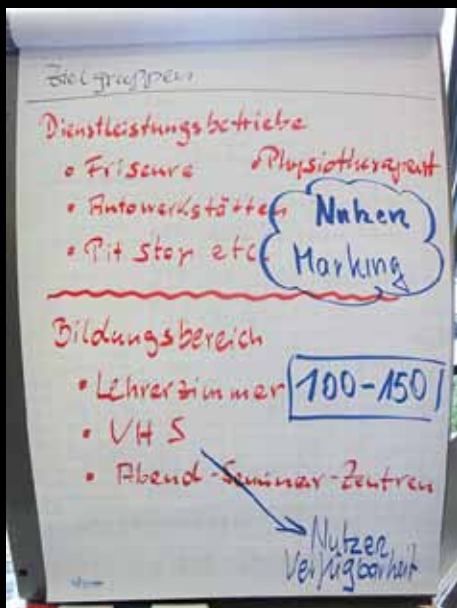 Zielgruppen
Dienstleistungsbetriebe
• Friseure
• Physiotherapeut
• Autowerkstätten
• Pit Stop etc.
Nutzen
Marking
Bildungsbereich
• Lehrerzimmer
100-150
• VHS
• Abend-Seminar-Zentren
Nutzen
Verfügbarkeit